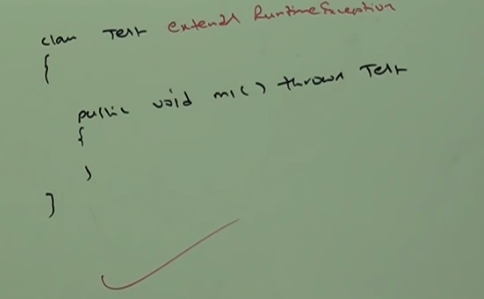 class Test extends RuntimeException
{
public void m1() throws Test
{
}
}